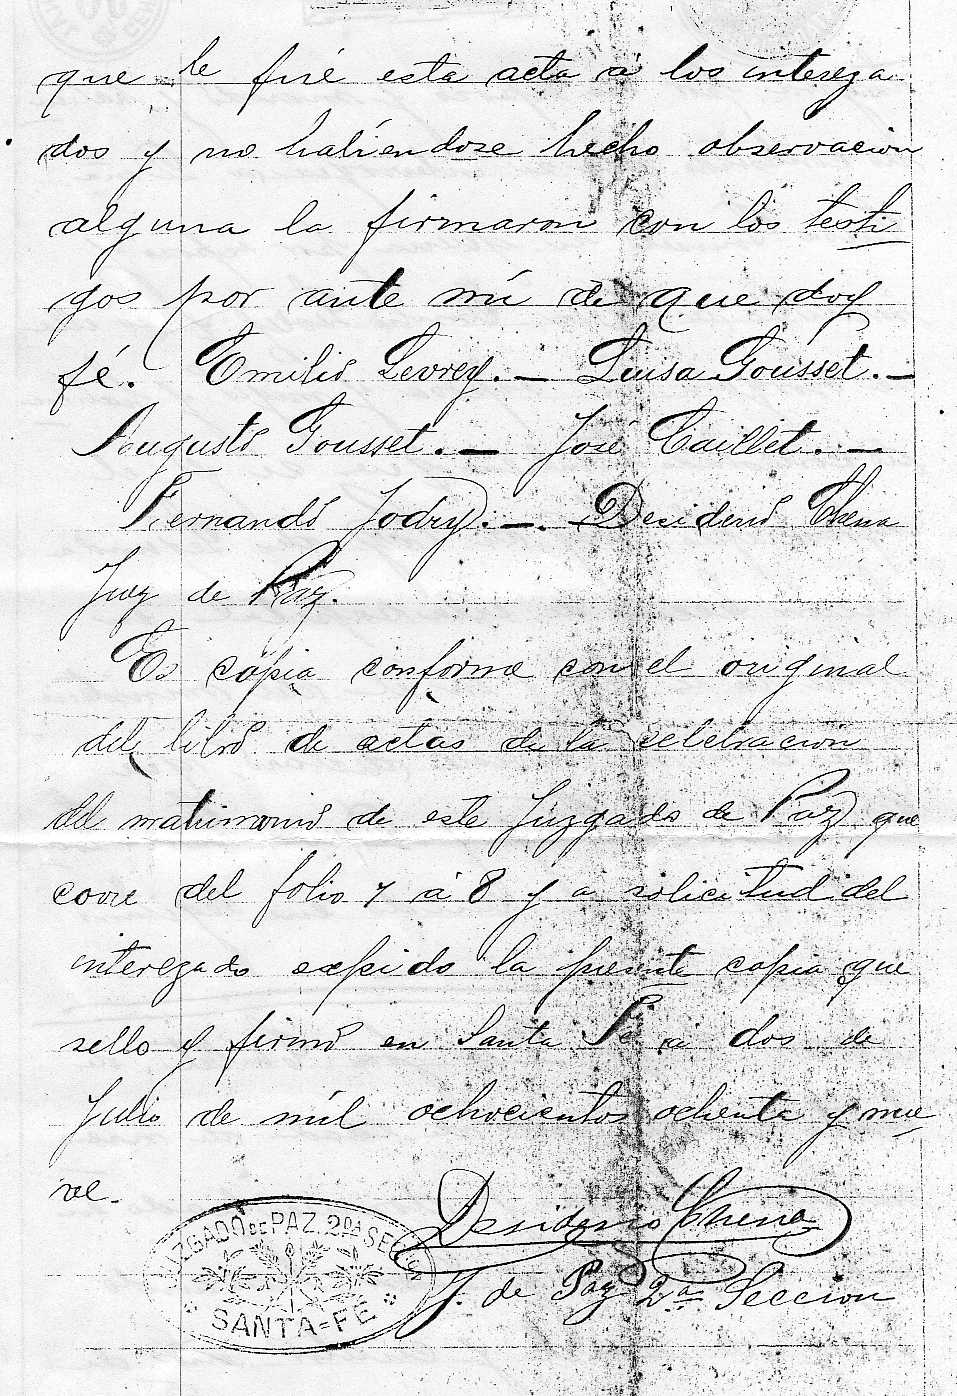 que le fué esta acta á los intereza
dos y no habiendose hecho observacion
alguna la firmaron con los testi
gos por ante mi de que doy
fé. Emilio Levrey. — Luisa Gousset. —
Augusto Gousset. — José Caillet. —
Fernando Jodry. —. Desiderio Chena
Juez de Paz.
Es copia conforme con el original
del libro de actas de la celebracion
del matrimonio de este Juzgado de Paz que
corre del folio 7 á 8 y a solicitud del
interezado expido la presente copia que
sello y firmo en Santa Fé a dos de
Julio de mil ochocientos ochenta y nue
ve.
Desiderio Chena
J. de Paz 2ª Seccion
JUZGADO DE PAZ 2DA SECCION
SANTA-FÉ